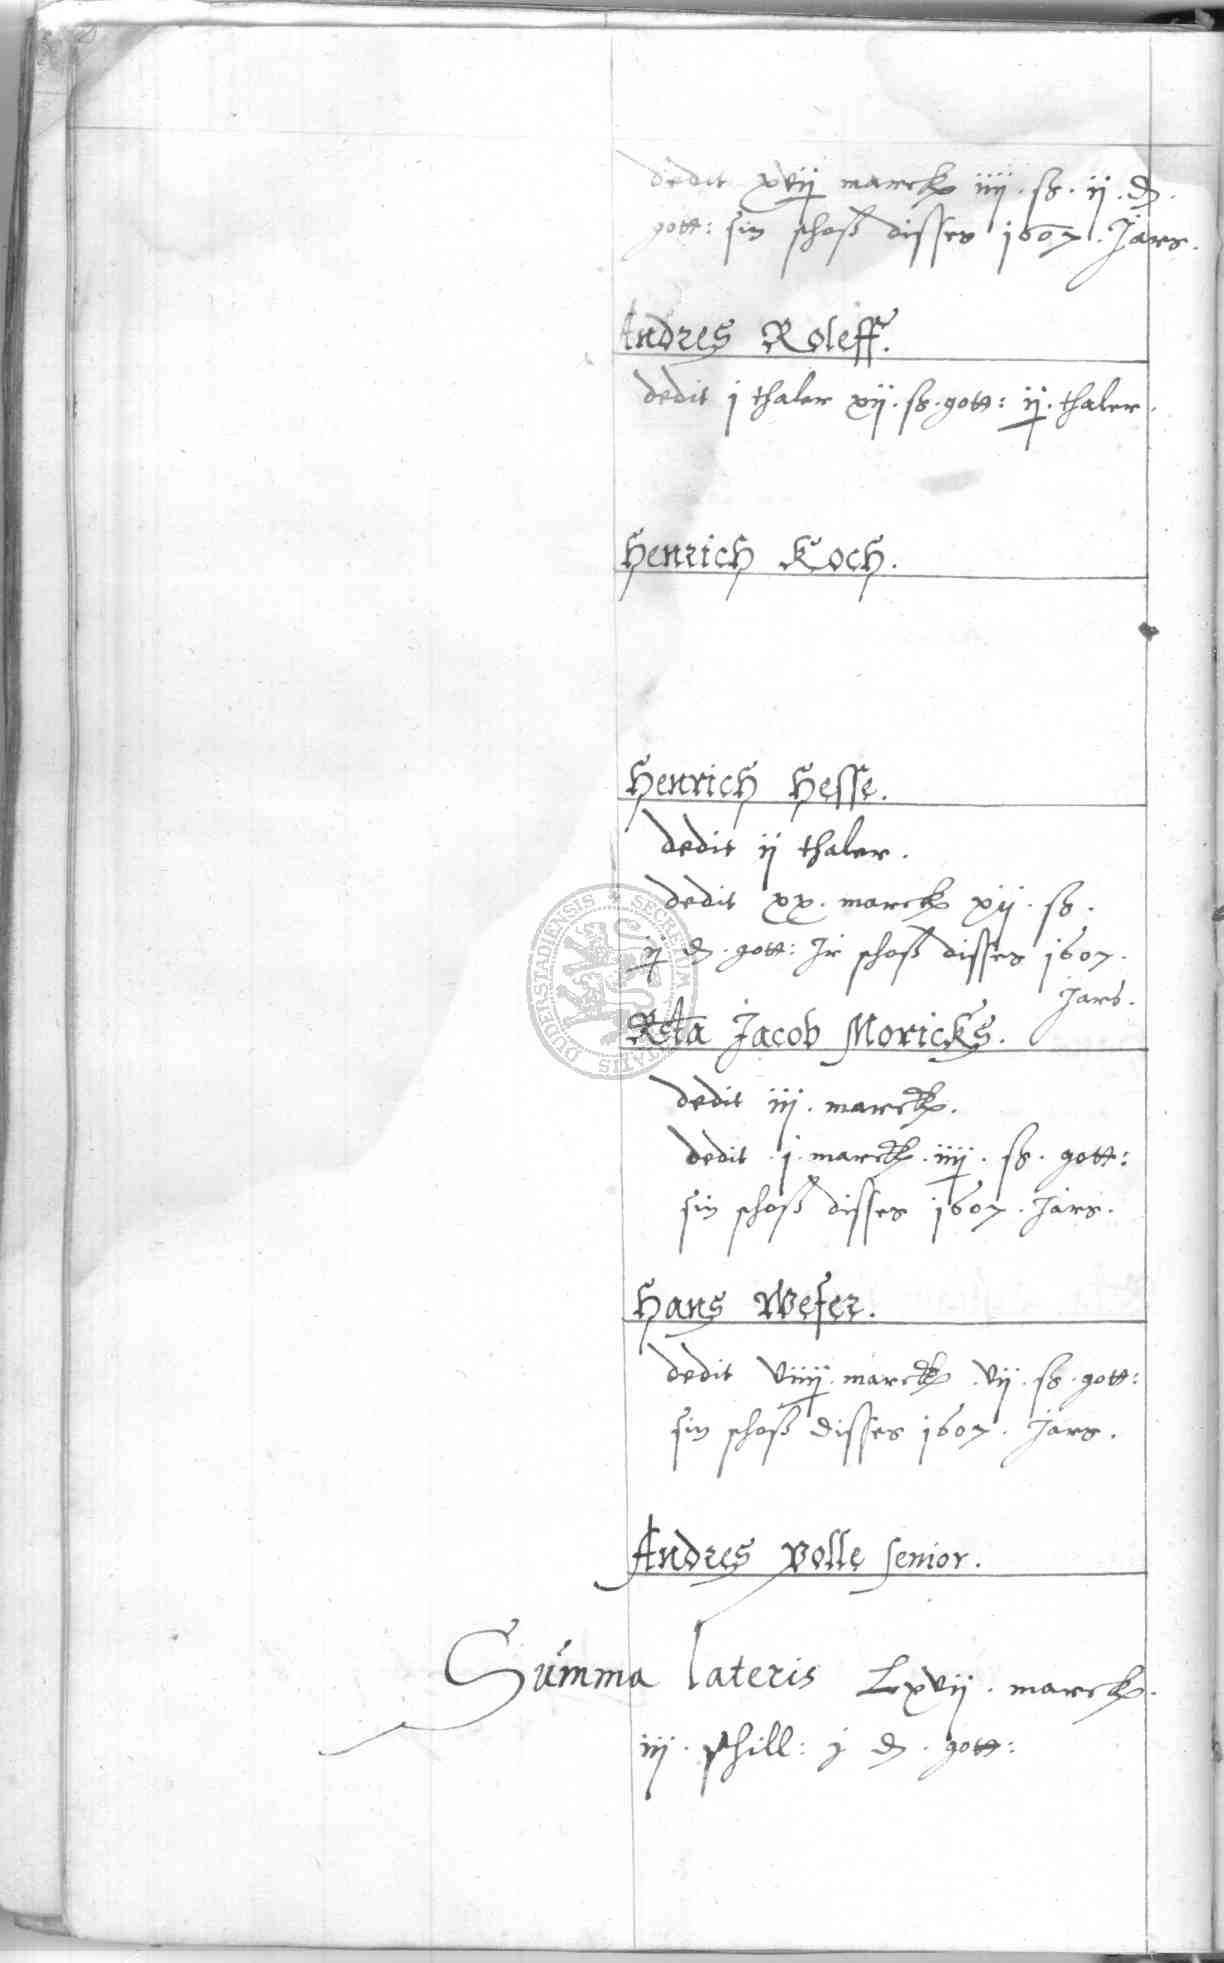 dedit xvij marck iiij. ß. ij. d.
gott: sin schoß disses 1607. Jars.
Andres Roleff.
dedit j thaler xij. ß. gott: ij. thaler.
Henrich Koch.
Henrich Hesse.
dedit ij thaler.
dedit xx. marck xij. ß.
ij d. gott: Jr schoß disses 1607.
Jars.
Rcta Jacob Moricks.
dedit iij. marck.
dedit. j. marck. iiij. ß. gott:
sin schoß disses 1607. Jars.
Hans Wefer.
dedit viiij. marck. vij. ß. gott:
sin schoß disses 1607. Jars.
Andres Polle senior.
Summa lateris Lxvij. marck.
iij. schill: j d. gott:
SECRETUM
DUDERSTADIENSIS